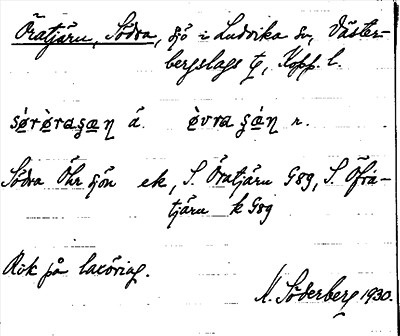 Öratjärn, Södra, sjö i Ludvika sn, Väster-
bergslags tg, Kopp. l.
sørørasøŋ ä. øvra søn n.
Södra Öhr sjön ek, S. Öratjärn G89, S. Öfra-
tjärn k G89
Rik på laxöring.
N. Söderberg 1930.